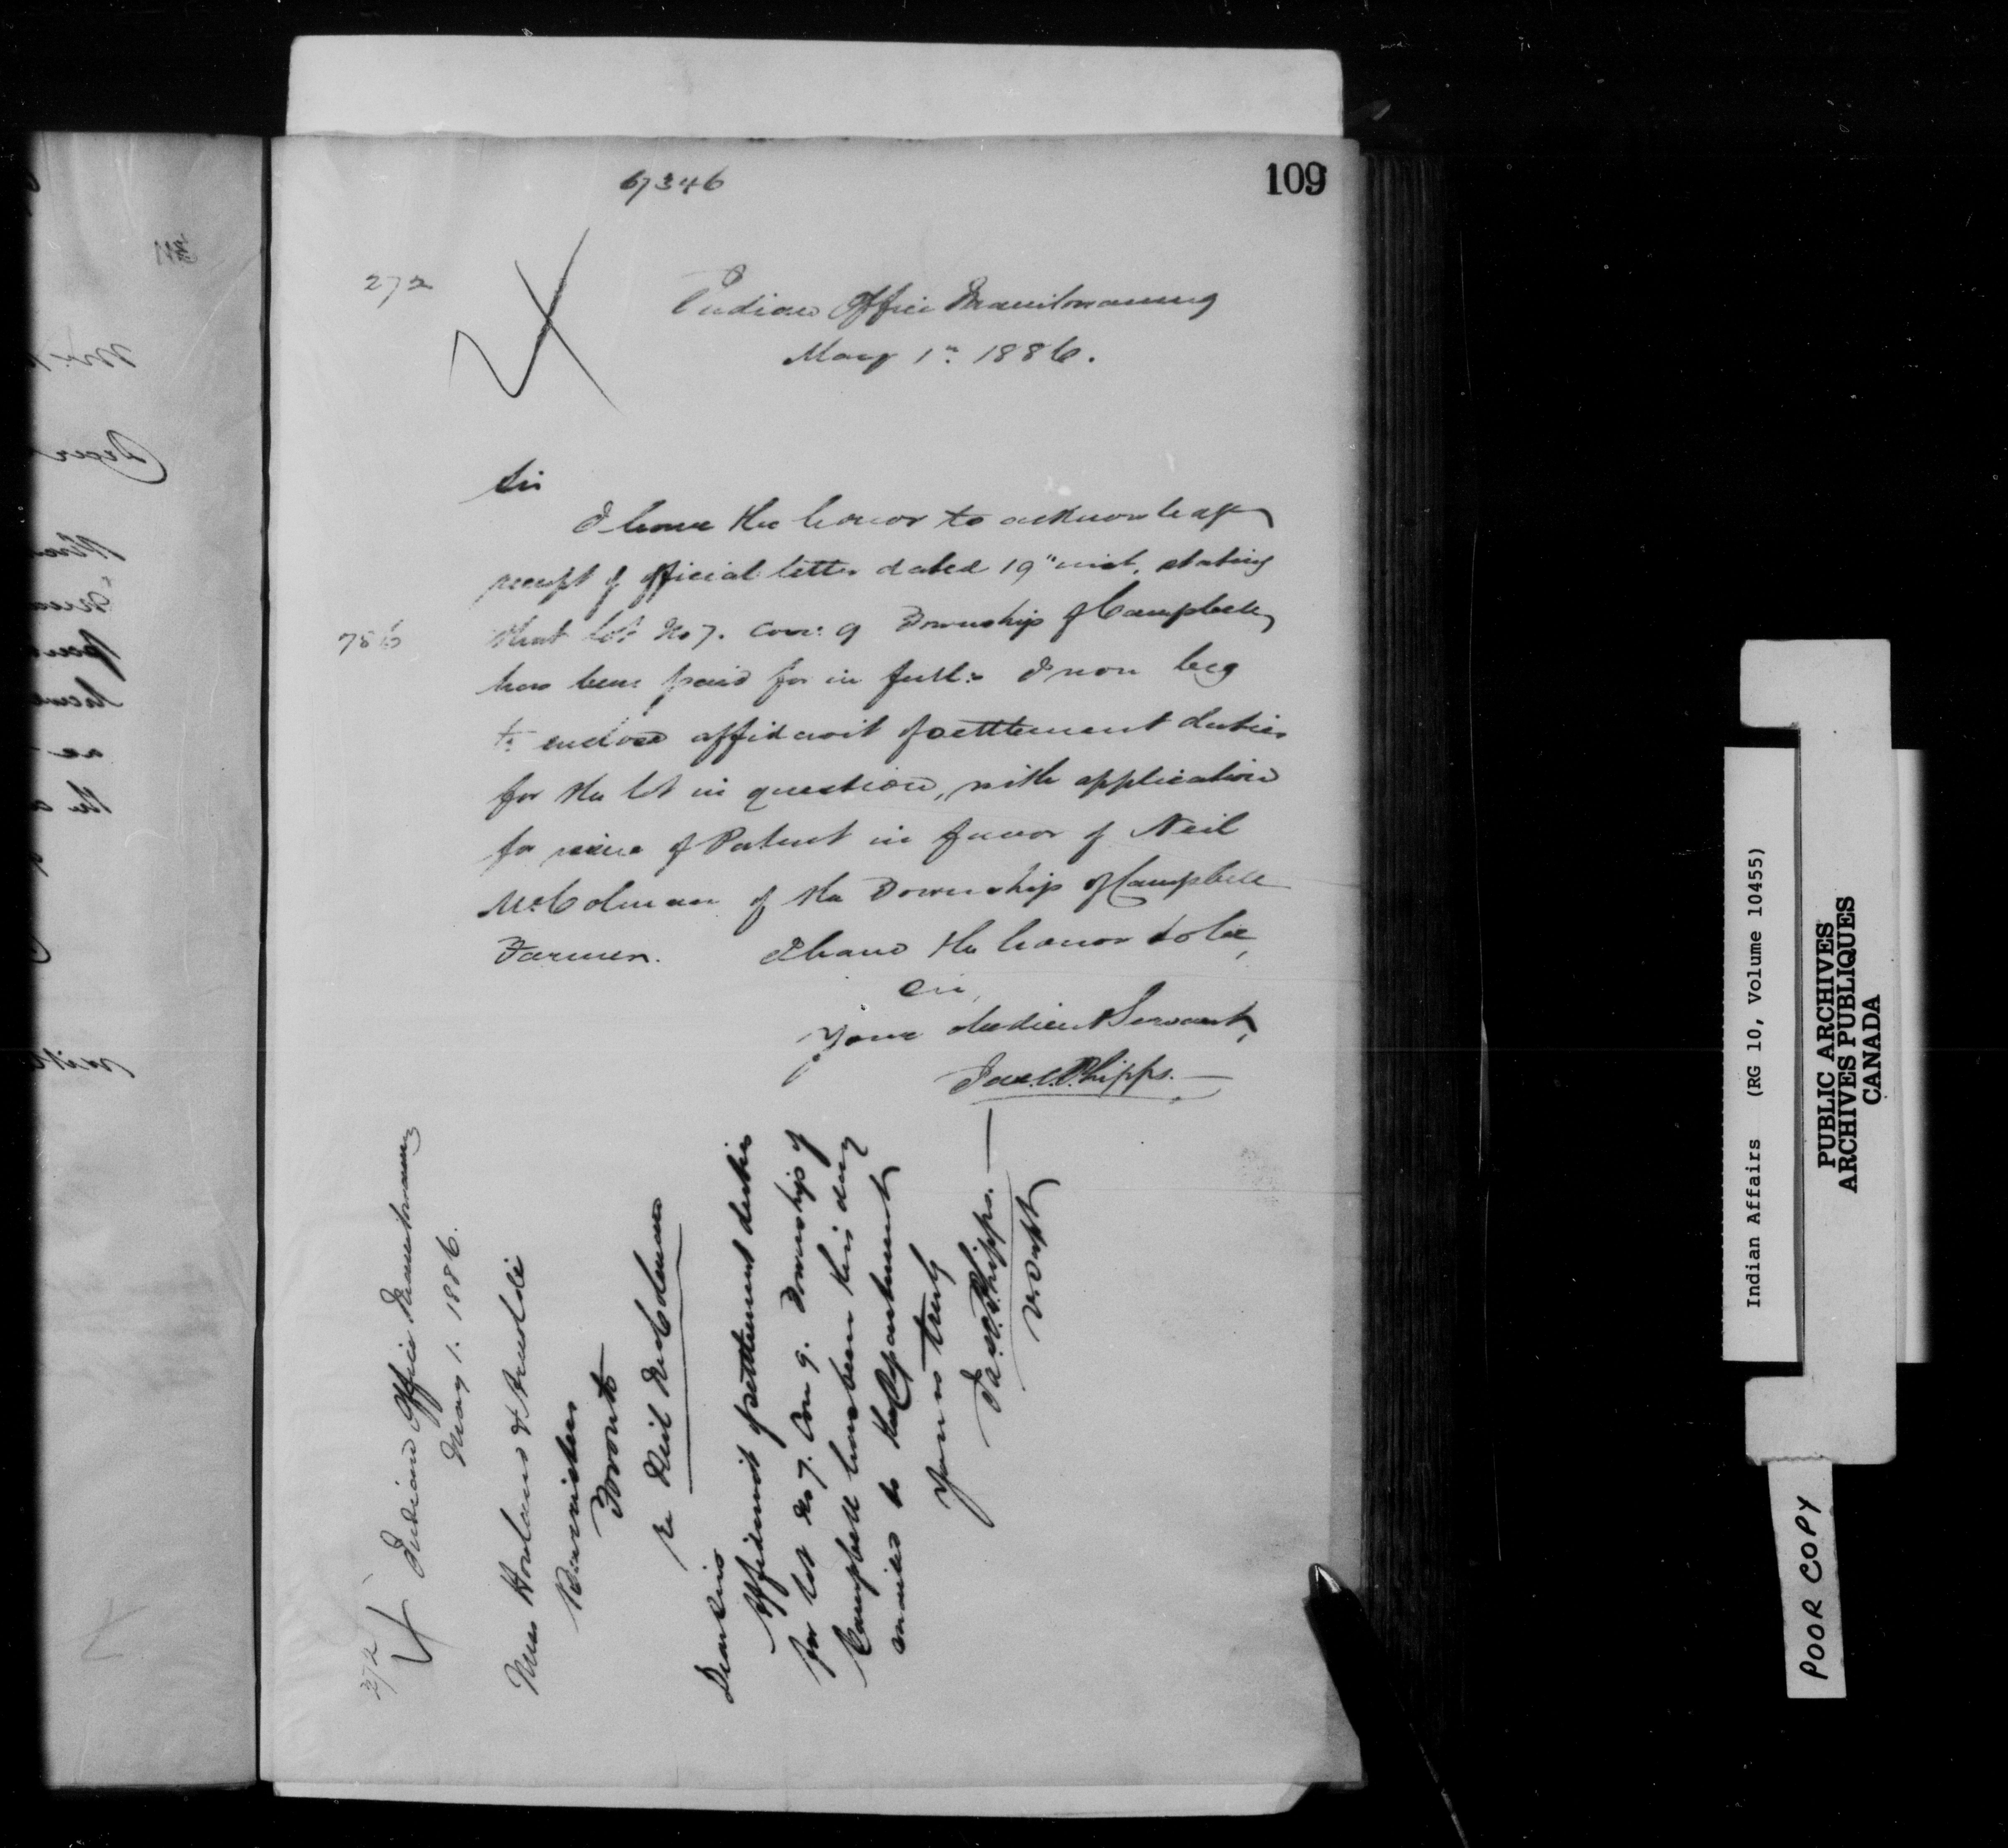 67346
109
272
Indian Office Manitowaning
May 1st 1886.
Sir
I have the honor to acknowledge
receipt of official letter dated 19" inst. stating
786
that lot No 7. Con: 9 Township of Campbell
has been paid for in full. I now beg
to enclose affidavit of settlement duties
for the lot in question, with application
for issue of Patent in favor of Neil
McColman of the Township of Campbell
Farmer. I have the honor to be,
Sir,
Your obedient Servant,
Jas. C. Phipps.
272
Indian Office Manitowaning
May 1. 1886.
Mess
Barristers
Toronto
re Neil McColman
Dear Sirs
Affidavit of settlement duties
for lot No 7. Con 9. Township of
Campbell has been this day
mailed to the Department
Yours truly
Jas. C. Phipps.
V. Supt
Indian Affairs (RG 10, Volume 10455)
PUBLIC ARCHIVES
ARCHIVES PUBLIQUES
CANADA
POOR COPY